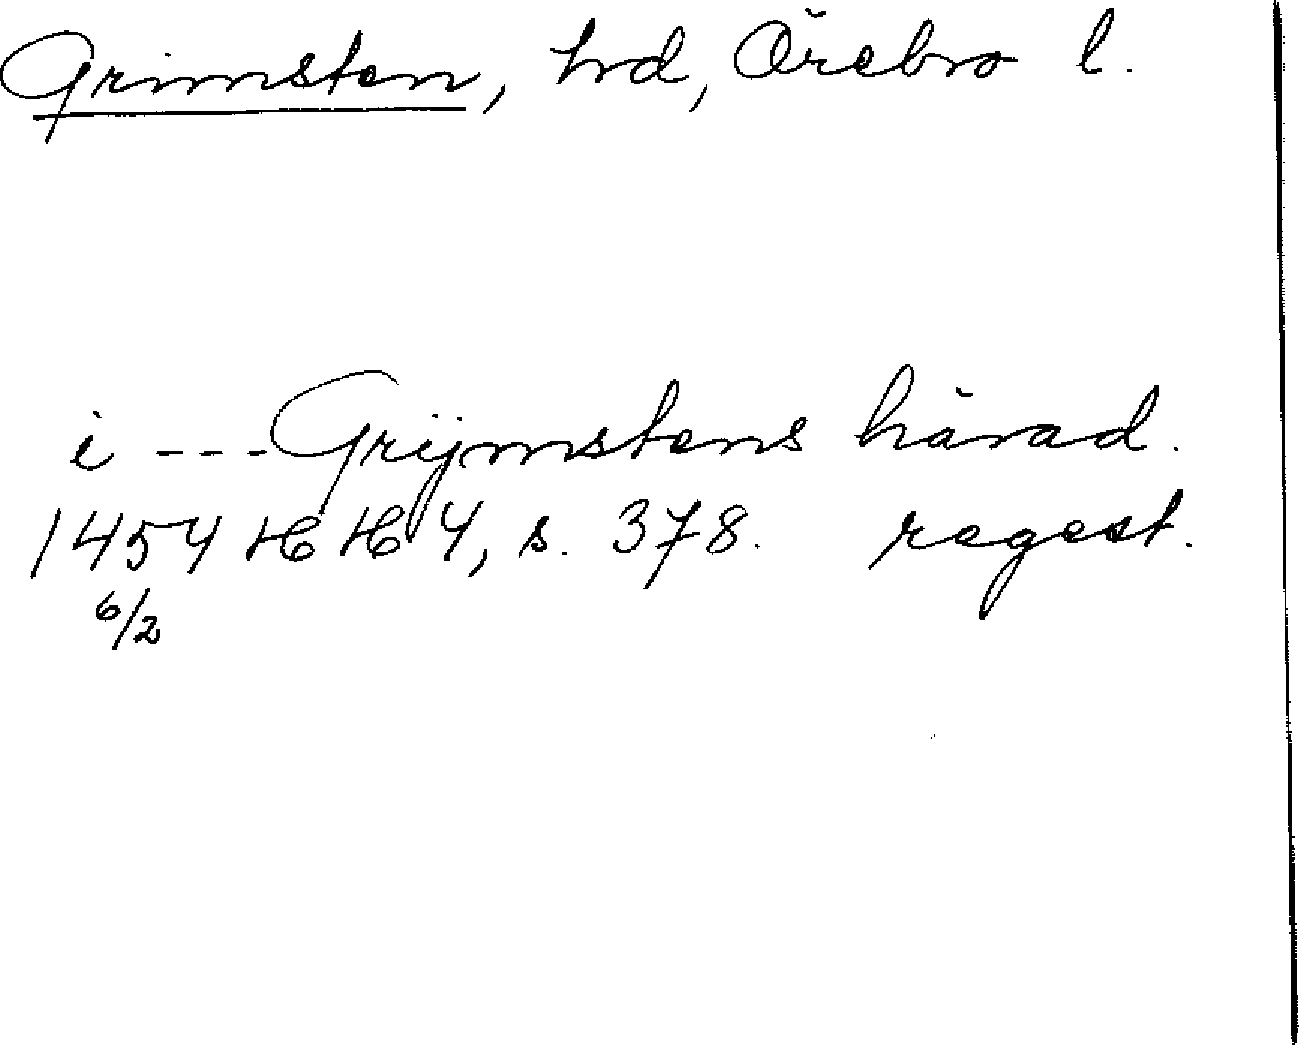 Grimsten, hd, Örebro l.
i --- Grijmstens härad.
1454 HH 4, s. 378. regest.
6/2